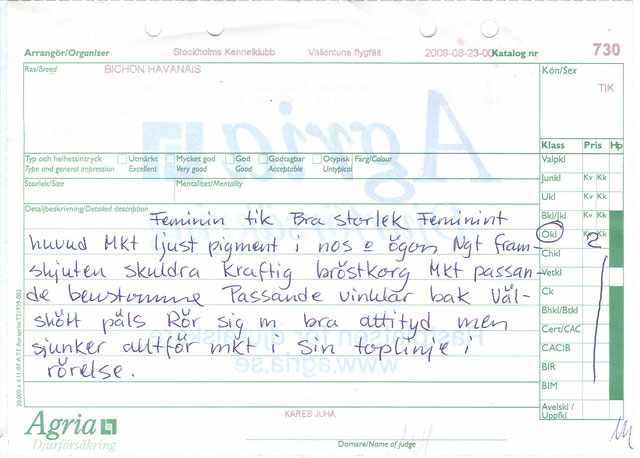 Arrangör/Organizer Stockholms Kennelklubb Vallentuna flygfält 2009-08-23-00 Katalog nr 730
Ras/Breed BICHON HAVANAIS Kön/Sex
TIK
Klass Pris Hp
Typ och helhetsintryck Utmärkt Mycket god God Godtagbar Otypisk Färg/Colour
Type and general impression Excellent Very good Good Acceptable Untypical
Storlek/Size Mentalitet/Mentality
Detaljbeskrivning/Detailed description
Feminin tik Bra storlek Feminint
huvud Mkt ljust pigment i nos o ögon Ngt fram-
skjuten skuldra Kraftig bröstkorg Mkt passan-
de benstomme Passande vinklar bak Väl-
skött päls Rör sig m bra attityd men
sjunker alltför mkt i sin toplinje i
rörelse.
Valpkl
Junkl Kv Kk
Ukl Kv Kk
Bkl/Jkl Kv Kk
Ökl Kv Kk 2
Chkl
Vetkl
Ck
Bhkl/Btkl
Cert/CAC
CACIB
BIR
BIM
Avelskl/
Uppfkl
Agria
Djurförsäkring
KARES JUHA
Domare/Name of judge
Agria
www.agria.se